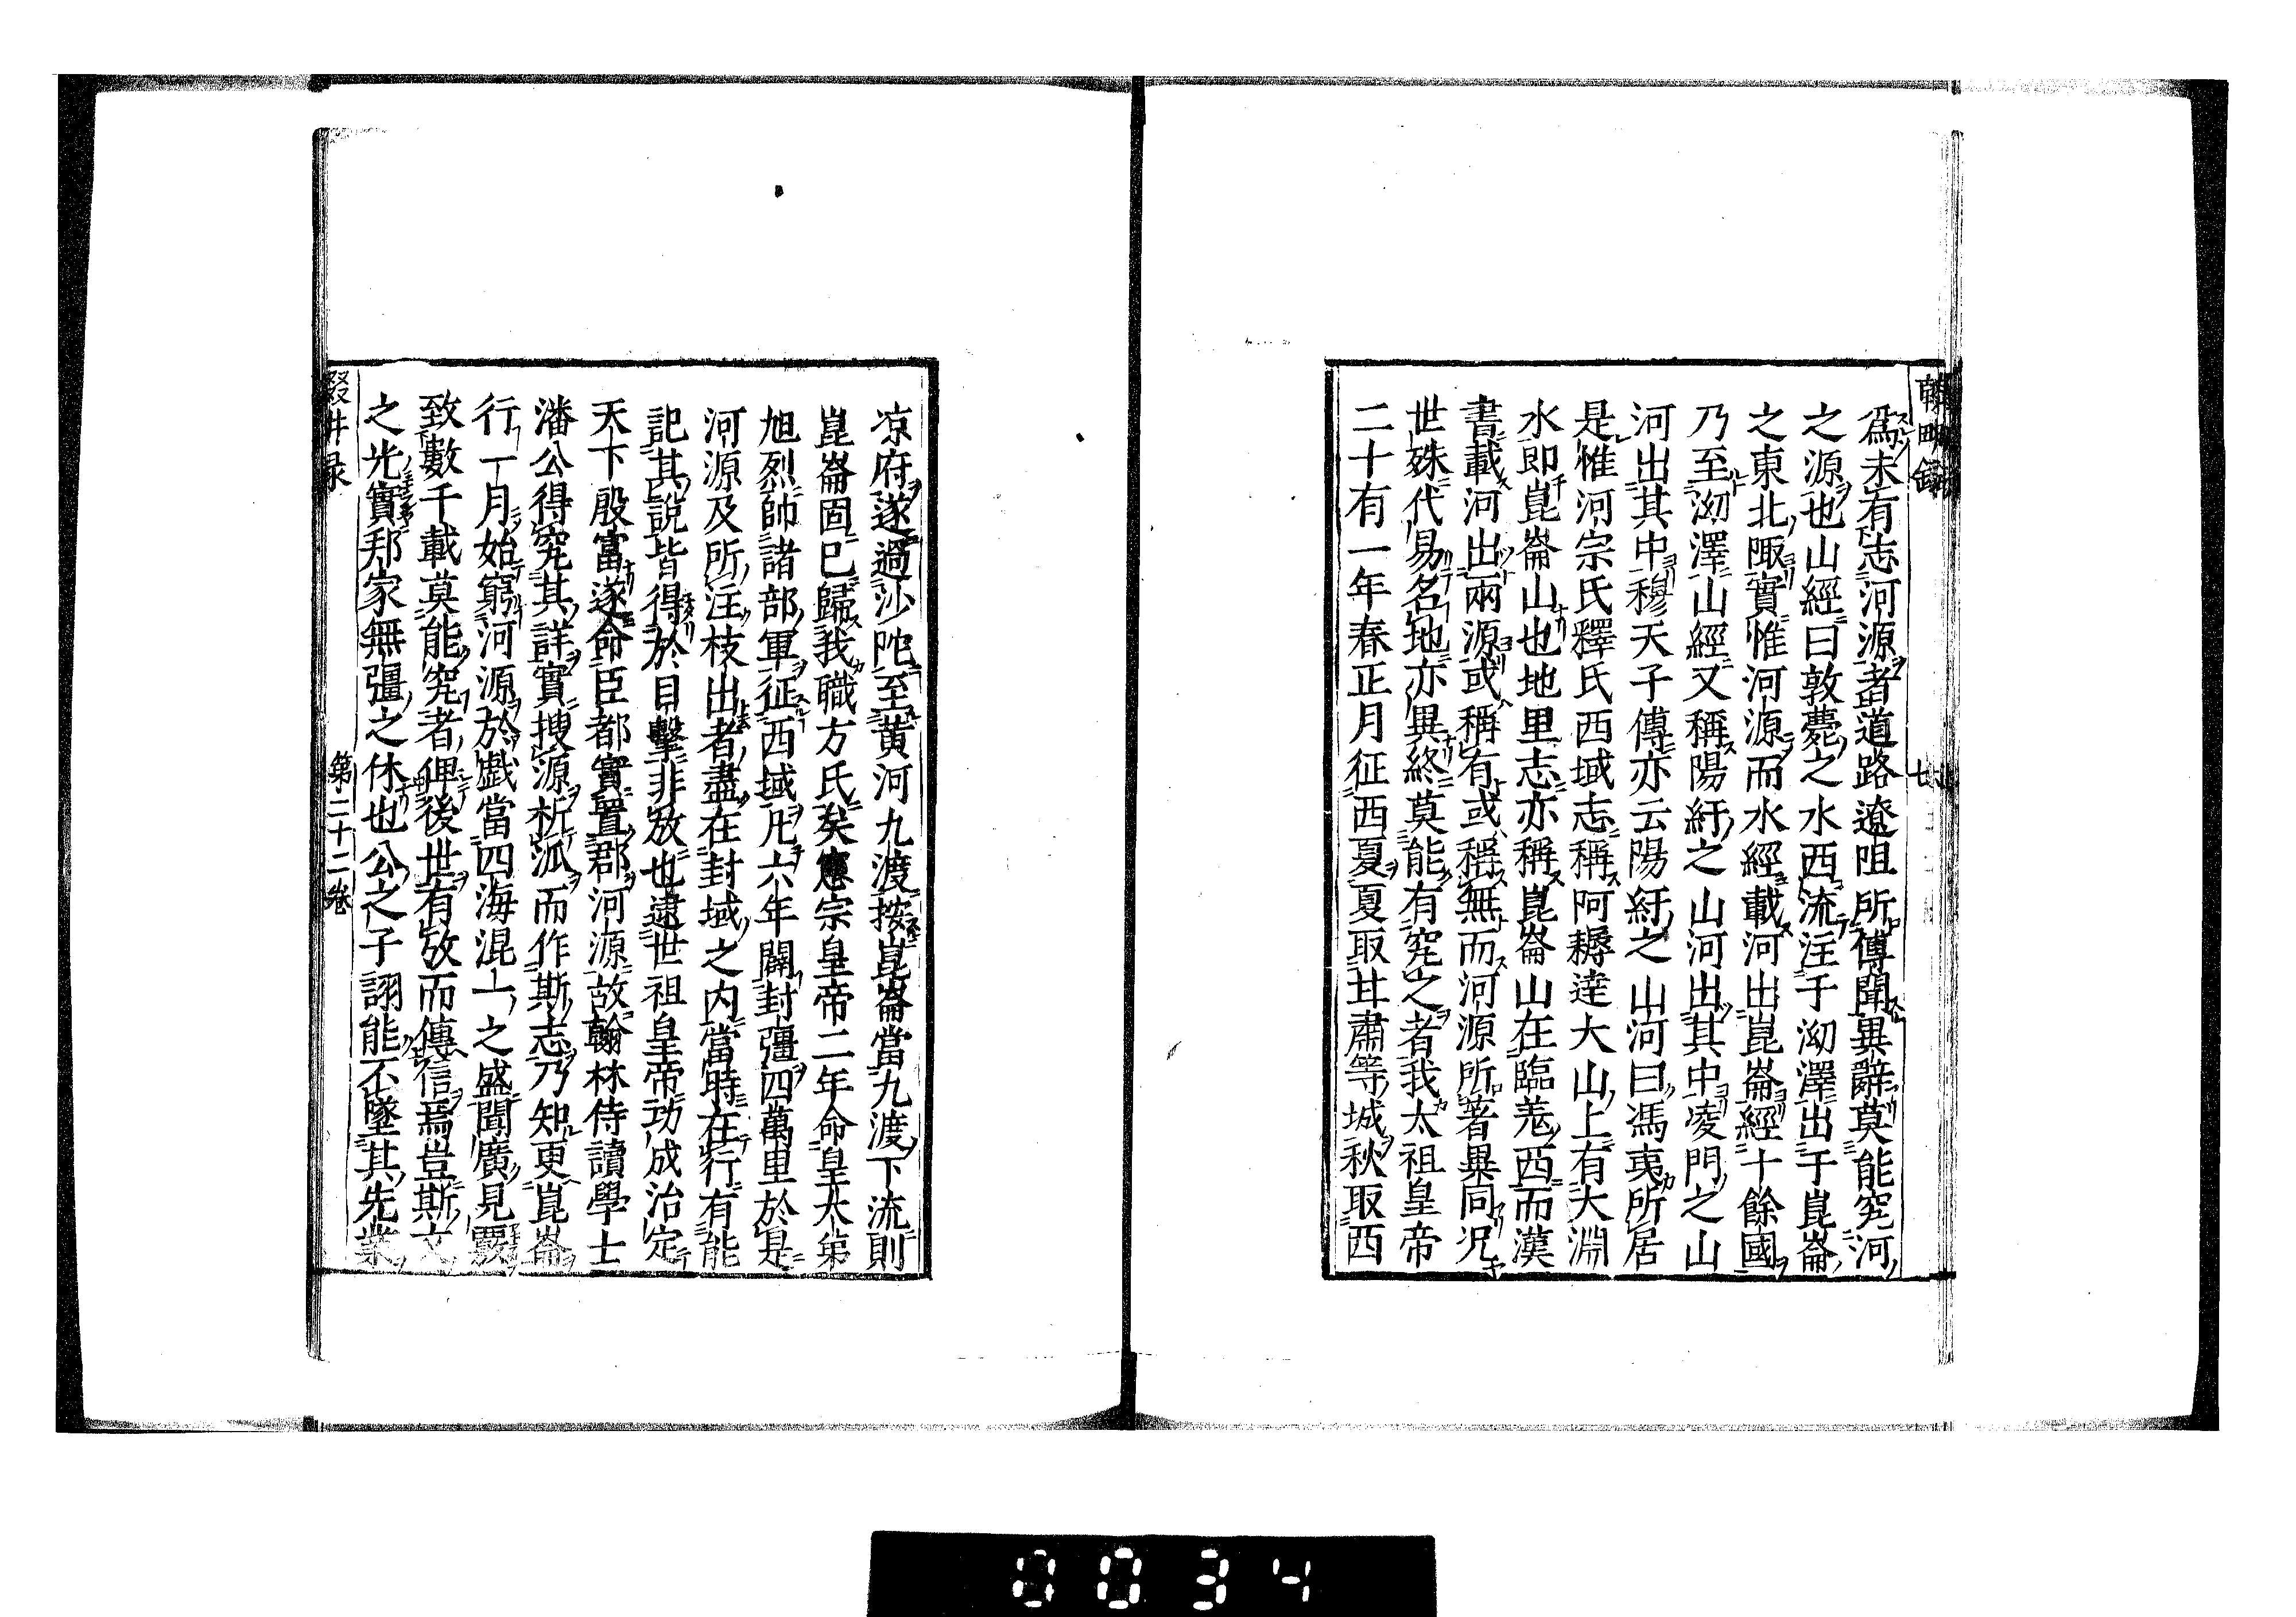 爲未有志河源者道路遼阻所傳聞異辭莫能究河
之源也山經曰敦薨之水西流注于泑澤出于崑崙
之東北陬實惟河源而水經載河出崑崙經十餘國
乃至泑澤山經又稱陽紆之山河出其中凌門之山
河出其中穆天子傳亦云陽紆之山河曰馮夷所居
是惟河宗氏釋氏西域志稱阿耨達大山上有大淵
水即崑崙山也地里志亦稱崑崙山在臨羌西而漢
書載河出兩源或稱有或稱無而河源所著異同况
世殊代易名地亦異終莫能有究之者我太祖皇帝
二十有一年春正月征西夏夏取甘肅等城秋取西
凉府遂過沙陀至黄河九渡按崑崙當九渡下流則
崑崙固已歸我職方氏矣憲宗皇帝二年命皇太弟
旭烈帥諸部軍征西域凡六年闢封彊四萬里於是
河源及所注枝出者盡在封域之内當時在行有能
記其說皆得於目擊非放也逮世祖皇帝功成治定
天下殷富遂命臣都實置郡河源故翰林侍讀學士
潘公得究其詳實搜源析泒而作斯志乃知更崑崙
行一月始窮河源於戲當四海混一之盛聞廣見覈
致數千載莫能究者俾後世有攷而傳信焉豈斯文
之光實邦家無彊之休也公之子詡能不墜其先業
第二十二卷
0034